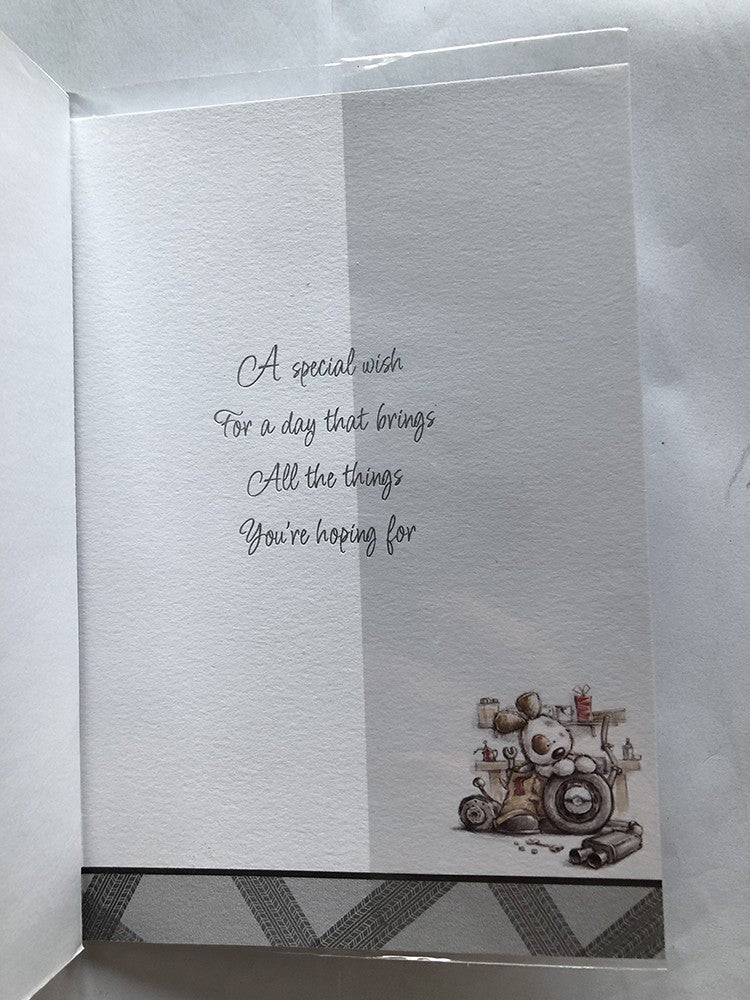 A special wish
For a day that brings
All the things
You're hoping for